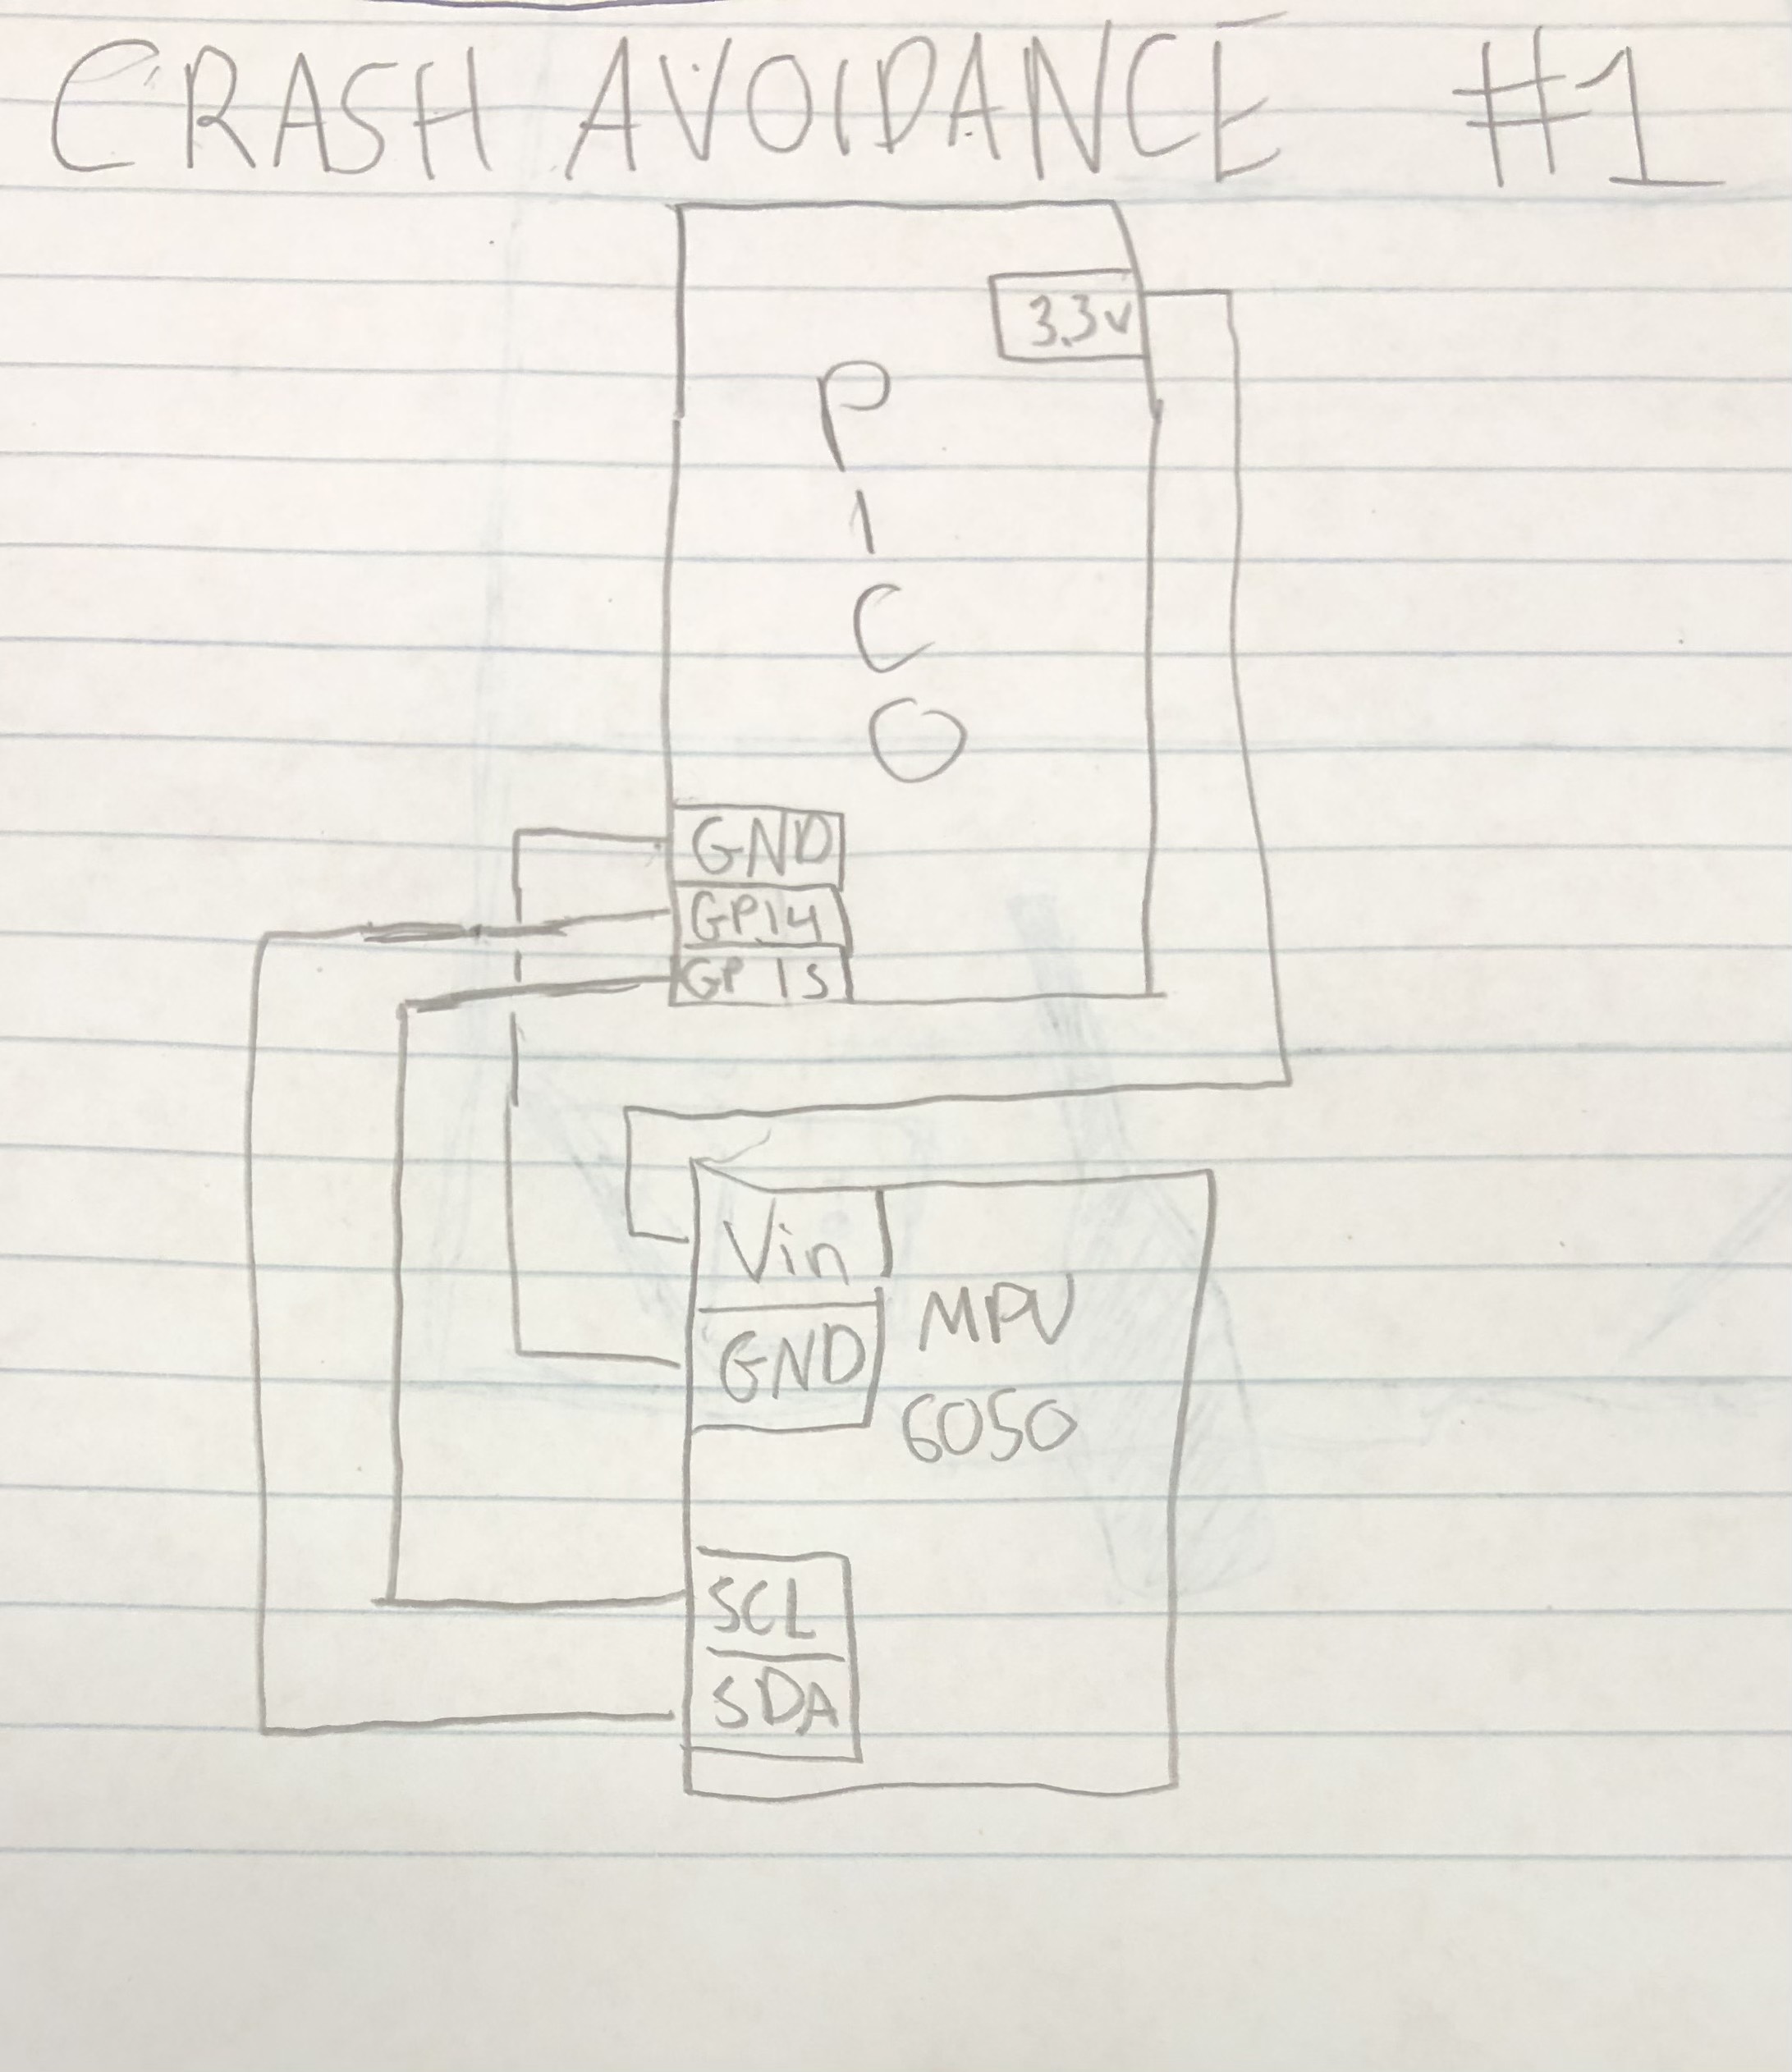 CRASH AVOIDANCE #1
3.3v
PICO
GND
GP14
GP15
Vin
GND
MPU
6050
SCL
SDA